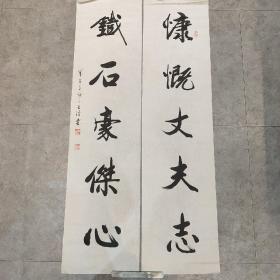 慷慨丈夫志
鐵石豪傑心